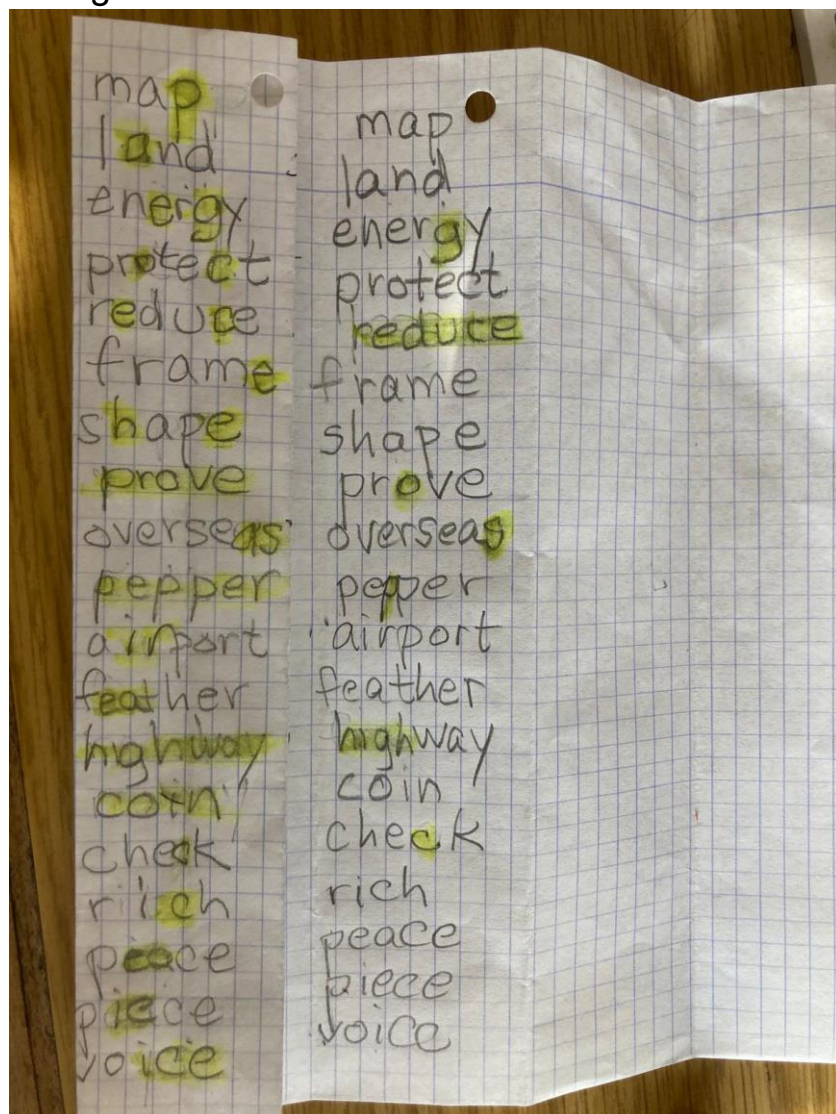 map
land
energy
protect
reduce
frame
shape
prove
overseas
pepper
airport
feather
highway
coin
check
rich
peace
piece
voice
map
land
energy
protect
reduce
frame
shape
prove
overseas
pepper
airport
feather
highway
coin
check
rich
peace
piece
voice